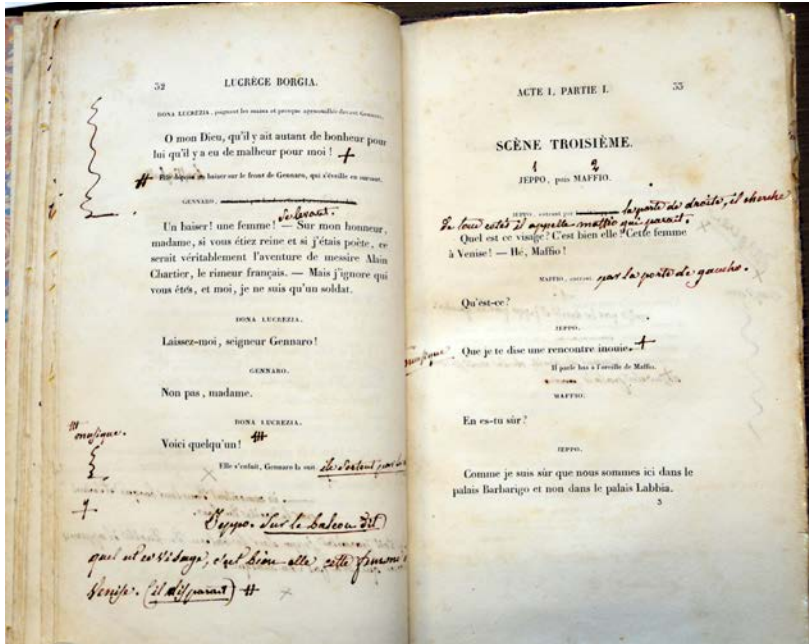 32
LUCRÈCE BORGIA.
DONA LUCREZIA, joignant les mains et presque agenouillée devant Gennaro.
O mon Dieu, qu'il y ait autant de bonheur pour
lui qu'il y a eu de malheur pour moi ! +
# Elle dépose un baiser sur le front de Gennaro, qui s'éveille en sursaut.
GENNARO,
Se levant.
Un baiser! une femme! — Sur mon honneur,
madame, si vous étiez reine et si j'étais poète, ce
serait véritablement l'aventure de messire Alain
Chartier, le rimeur français. — Mais j'ignore qui
vous êtes, et moi, je ne suis qu'un soldat.
DONA LUCREZIA.
Laissez-moi, seigneur Gennaro!
GENNARO.
Non pas, madame.
DONA LUCREZIA.
musique.
Voici quelqu'un!
Elle s'enfuit, Gennaro la suit. ils sortent par la
Jeppo. Sur le balcon dit
quel est ce visage, c'est bien elle cette femme
Venise. (il disparait) #
ACTE I, PARTIE I.
33
SCÈNE TROISIÈME.
1 2
JEPPO, puis MAFFIO.
JEPPO, entrant par la porte de droite, il cherche
de tous cotés il appelle maffio qui parait.
Quel est ce visage? C'est bien elle! Cette femme
à Venise! — Hé, Maffio!
MAFFIO, entrant par la porte de gauche.
Qu'est-ce?
JEPPO.
musique Que je te dise une rencontre inouïe. +
Il parle bas à l'oreille de Maffio.
MAFFIO.
En es-tu sûr?
JEPPO.
Comme je suis sûr que nous sommes ici dans le
palais Barbarigo et non dans le palais Labbia.
3